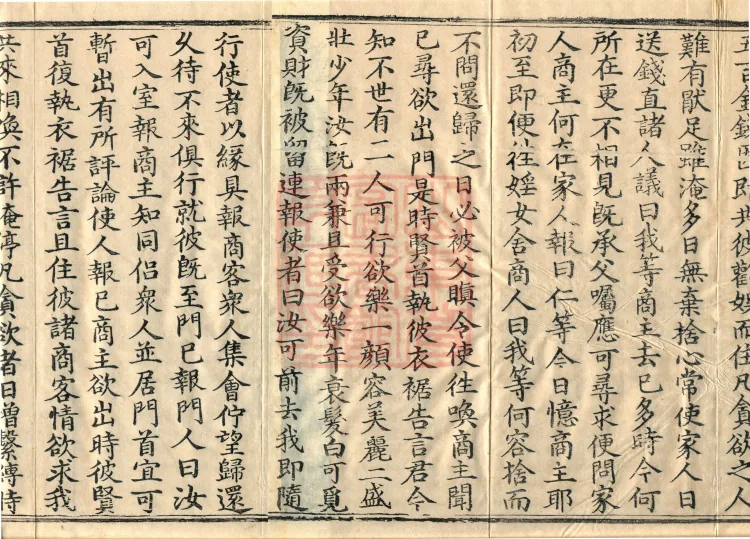 五百金錢與即共彼歡娛而住凡貪欲之人
難有猒足雖淹多日無棄捨心常使家人日
送錢直諸人議曰我等商主去已多時今何
所在更不相見旣承父囑應可尋求便問家
人商主何在家人報曰仁等今日憶商主耶
初至即便往婬女舍商人曰我等何容捨而
不問還歸之日必被父瞋令使往喚商主聞
已尋欲出門是時賢首執彼衣裾告言君今
知不世有二人可行欲樂一顔容美麗二盛
壯少年汝旣兩兼且受欲樂年衰髮白可覓
資財旣被留連報使者曰汝可前去我即隨
行使者以緣具報商客衆人集會佇望歸還
久待不來俱行就彼旣至門已報門人曰汝
可入室報商主知同侶衆人並居門首宜可
暫出有所評論使人報已商主欲出時彼賢
首復執衣裾告言且住彼諸商客情欲求我
共來相喚不許淹停凡貪欲者日增繫縛時